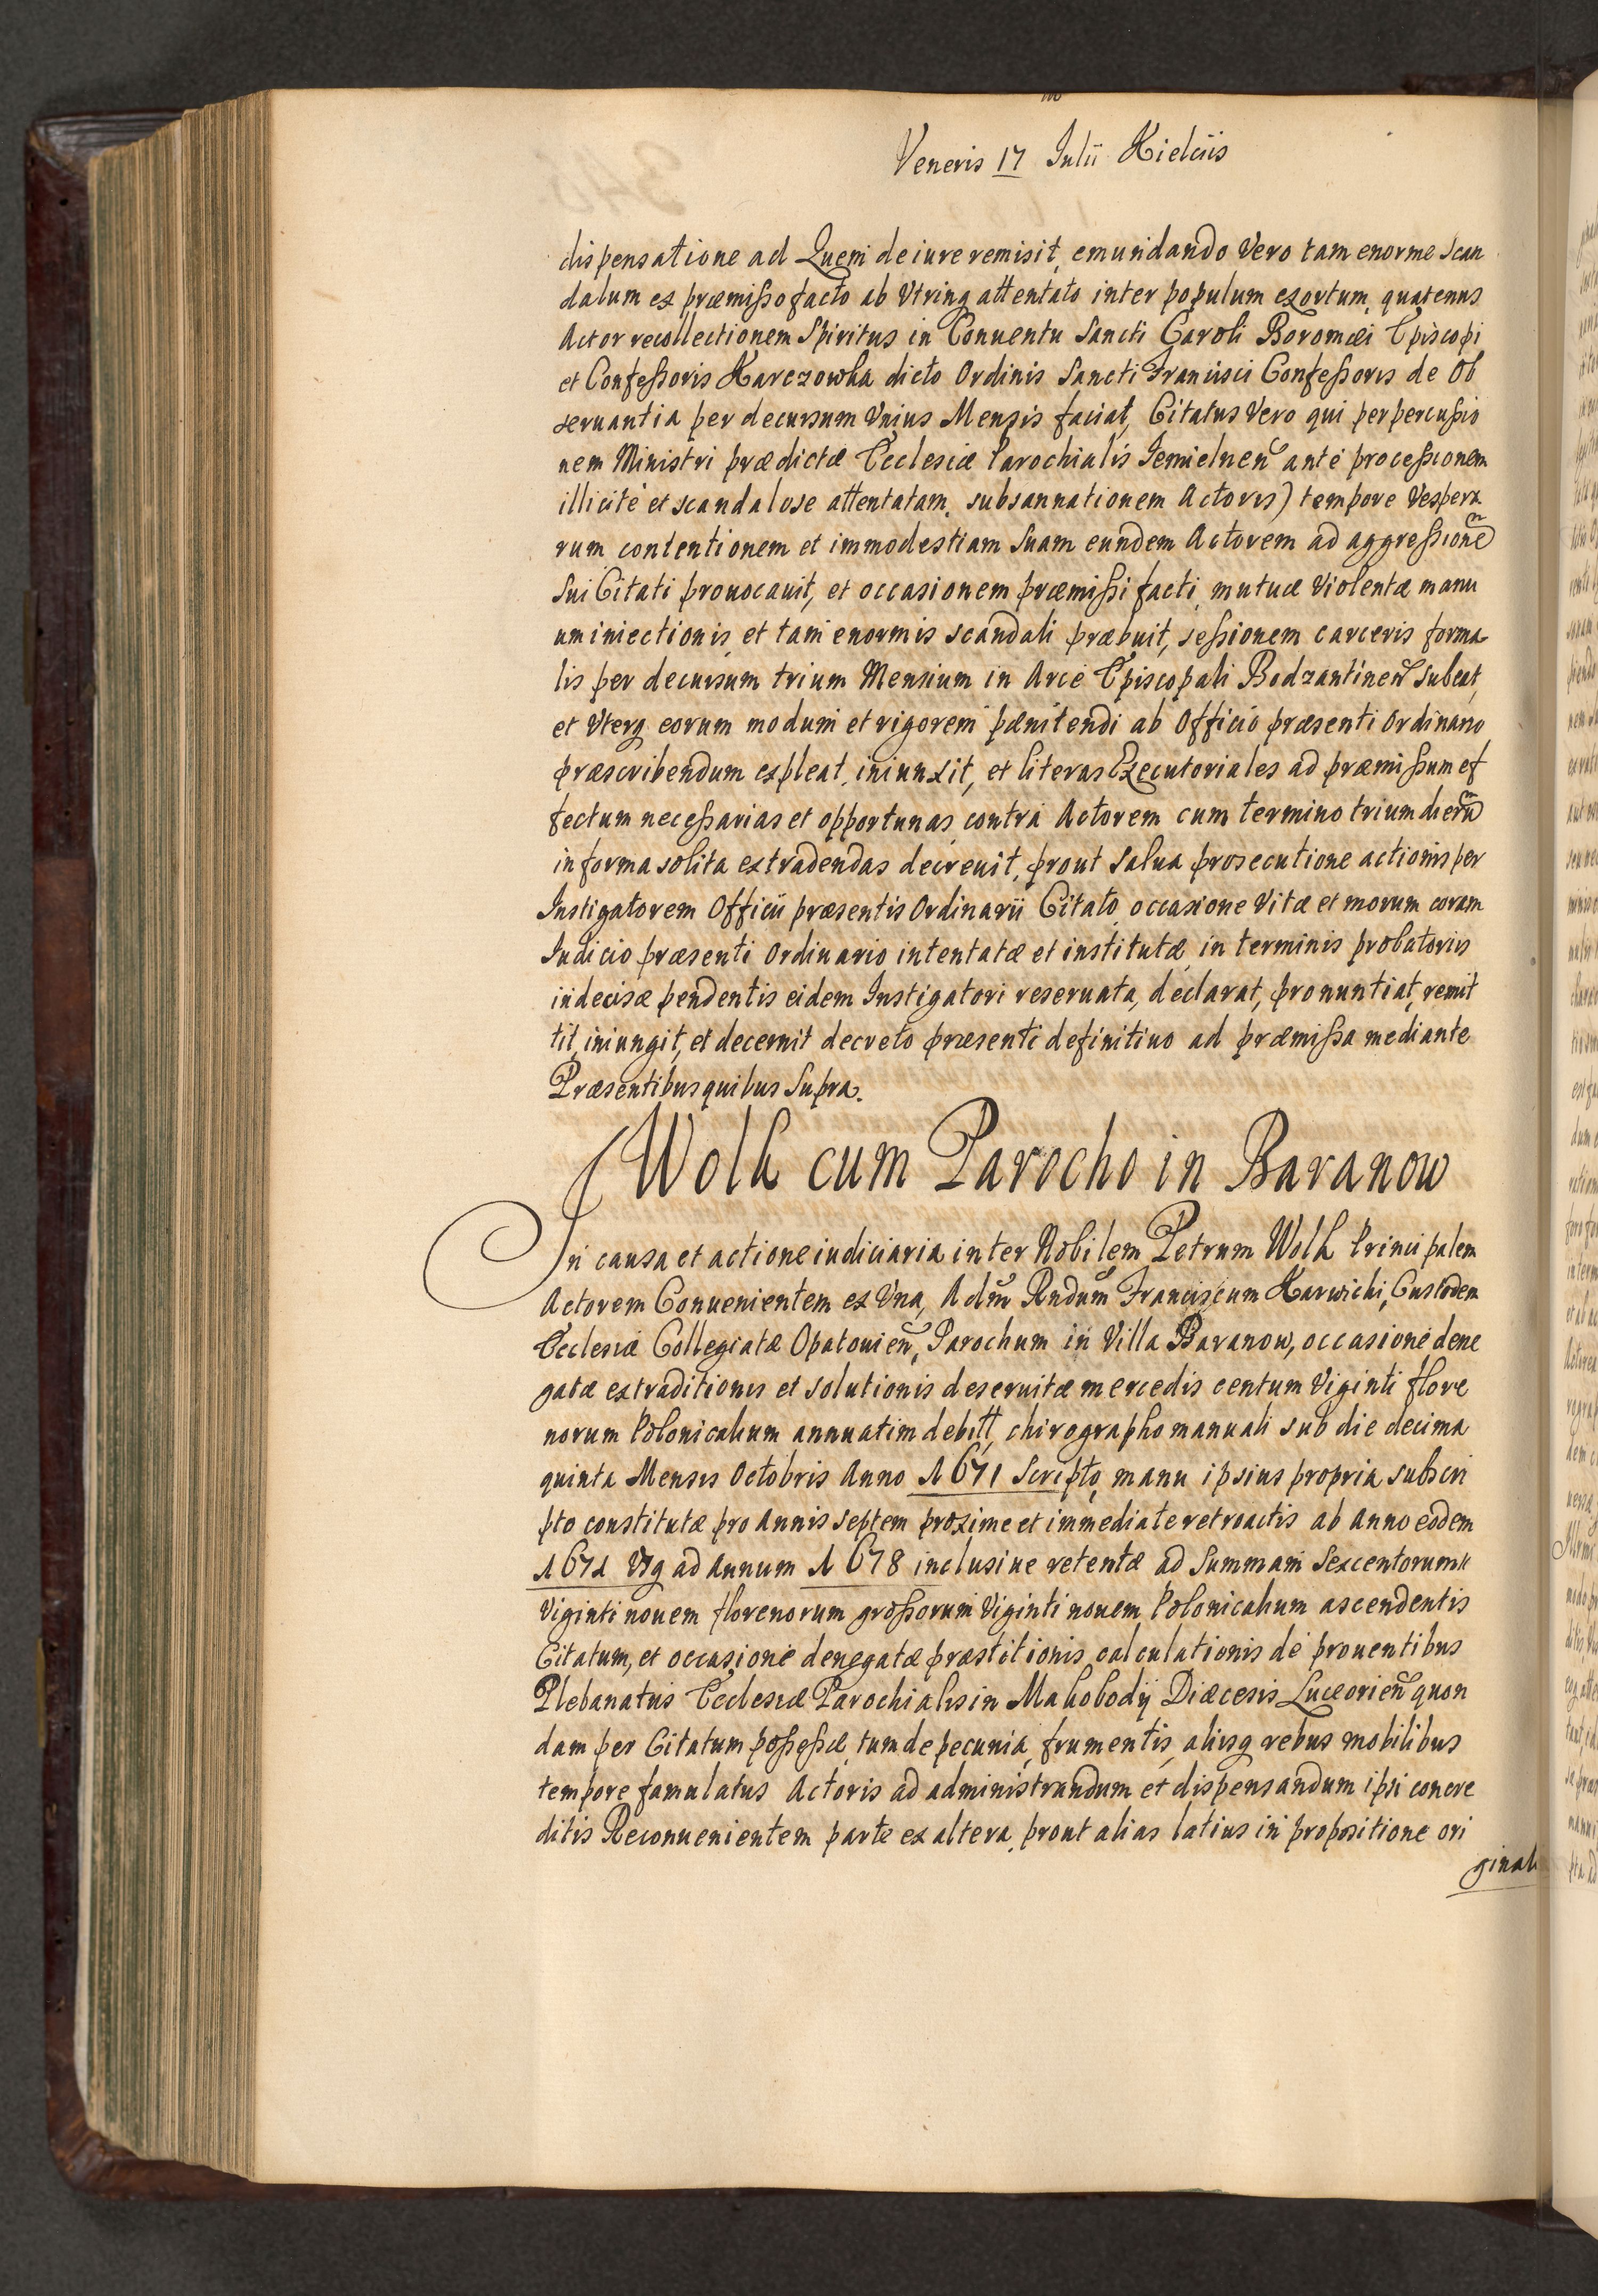 Veneris 17 Julii Kielciis
dispensatione ad Quem de iure remisit, emundando Vero tam enorme scan
dalum ex præmisso facto ab Vtrinq attentato inter populum exortum, quatenus
Actor recollectionem Spiritus in Conuentu Sancti Caroli Boromæi Episcopi
et Confessoris Karczowka dicto Ordinis Sancti Francisci Confessoris de Ob
seruantia per decursum Vnius Mensis faciat, Citatus Vero qui per percussio
nem Ministri prædictæ Ecclesiæ Parochialis Jemielnen ante processionem
illicite et scandalose attentatam, subsannationem Actoris) tempore Vespera
rum contentionem et immodestiam Suam eundem Actorem ad aggressione
Sui Citati prouocauit, et occasionem præmissi facti, mutuæ Violentæ manu
um iniectionis, et tam enormis scandali præbuit, sessionem carceris forma
lis per decursum trium Mensium in Arce Episcopali Bodzantinen Subeat,
et Vterq eorum modum et rigorem pænitendi ab Officio præsenti Ordinario
præscribendum expleat, iniunxit, et literas Executoriales ad præmissum ef
fectum necessarias et opportunas contra Actorem cum termino trium dieru
in forma solita extradendas decreuit, prout Salua prosecutione actionis per
Instigatorem Officii præsentis Ordinarii Citato occasione Vitæ et morum coram
Iudicio præsenti Ordinario intentatæ et institutæ in terminis probatoriis
indecisæ pendentis eidem Instigatori reseruata, declarat, pronuntiat, remit
tit, iniungit, et decernit decreto præsenti definitiuo ad præmissa mediante
Præsentibus quibus Supra.
Wolk cum Parocho in Baranow
In causa et actione iudiciaria inter Nobilem Petrum Wolk Principalem
Actorem Conuenientem ex Vna, Adm Rndum Franciscum Karwicki, Custodem
Ecclesiæ Collegiatæ Opatouien, Parochum in Villa Baranow, occasione dene
gatæ extraditionis et solutionis deseruitæ mercedis centum Viginti flore
norum Polonicalium annuatim debitt, chirographo manuali sub die decima
quinta Mensis Octobris Anno 1671 Scripto, manu ipsius propria subscri
pto constitutæ pro Annis septem proxime et immediate retroactis ab anno eodem
1671 Vsq ad annum 1678 inclusiue retentæ ad Summam Sexcentorum
Viginti nouem florenorum grossorum Viginti nouem Polonicalium ascendentis
Citatum, et occasione denegatæ præstitionis calculationis de prouentibus
Plebanatus Ecclesiæ Parochialis in Makobody Diæcesis Luceorien quon
dam per Citatum possessæ, tum de pecunia, frumentis, aliisq rebus mobilibus
tempore famulatus Actoris ad administrandum et dispensandum ipsi concre
ditis Reconuenientem parte ex altera, prout alias latius in propositione ori
ginali